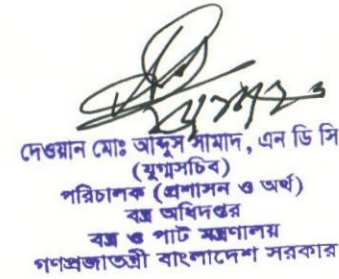 দেওয়ান মোঃ আব্দুস সামাদ, এন ডি সি
(যুগ্মসচিব)
পরিচালক (প্রশাসন ও অর্থ)
বস্ত্র অধিদপ্তর
বস্ত্র ও পাট মন্ত্রণালয়
গণপ্রজাতন্ত্রী বাংলাদেশ সরকার